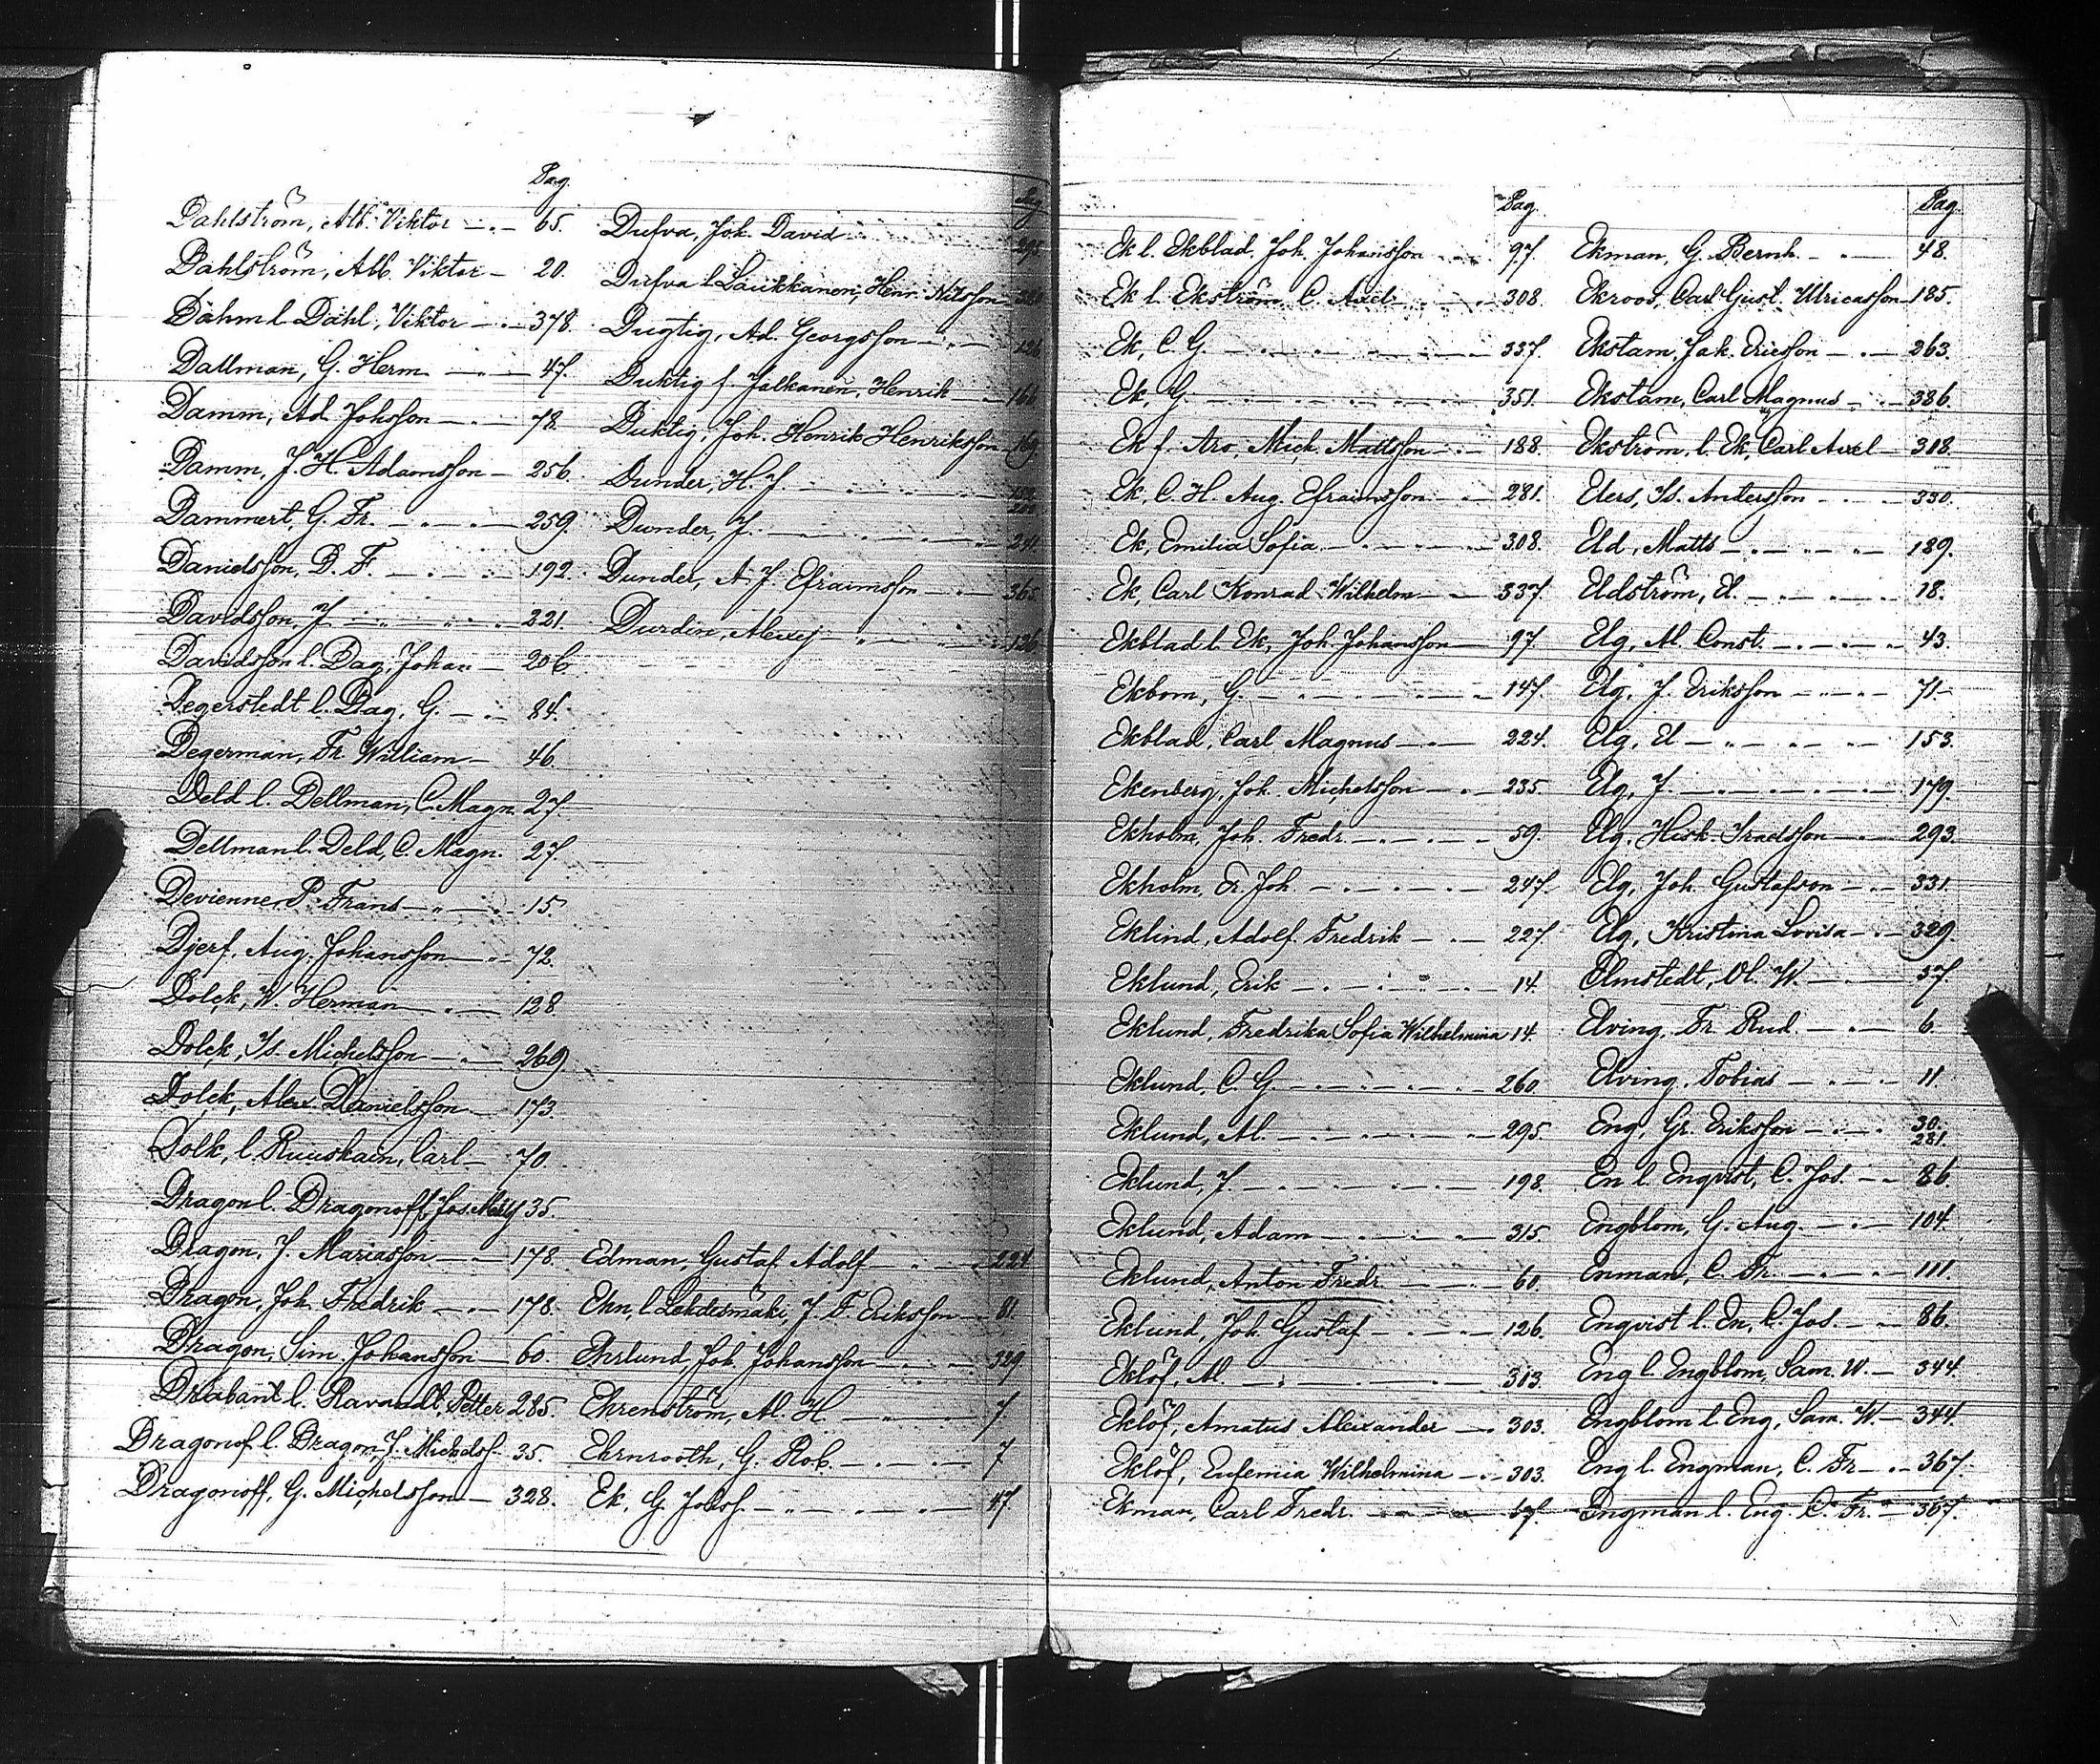 Pag.
Dahlström, Alb. Viktor 65.
Dahlström, Alb. Viktor 20.
Dahm l. Dahl, Viktor 378.
Dallman, G. Herm. 47.
Damm, Ad. Johsson 78
Damm, J. H. Adamsson 256
Dammert, G. Fr. 259.
Danielsson, D. F. 192.
Davidsson, J. 221.
Davidsson l. Dag, Johan 206
Degerstedt l. Dag, G. 84.
Degerman, Fr. William 46
Deld l. Dellman, C. Magn. 27.
Dellman l. Deld, C. Magn. 27.
Devienne, P. Frans 15.
Djerf, Aug. Johansson 72.
Dolck, W. Herman 128
Dolck, Is. Michelsson 269
Dolck, Alex. Danielsson 173.
Dolk, l. Ruuskain, Carl 70.
Dragon l. Dragonoff, Jos. 35.
Dragon, J. Mariasson 178.
Dragon, Joh. Fredrik 178.
Dragon, Sim. Johansson 60.
Drabant l. Petter 285.
Dragonof l. Dragon, J. Michelss. 35.
Dragonoff, G. Michelsson 328.
Pag.
Dufva, Joh. David 295
Dufva l. Laukkanen, Henr. Nilsson
Dugtig, Ad. Georgsson 126
Duktig f. Jalkanen, Henrik 166
Duktig, Joh. Henrik Henriksson 169
Dunder, H. J.
Dunder, J. 241
Dunder, A. J. Efraimsson 365
Durdin, Alexej 126
Edman, Gustaf Adolf 224
Ehn, l. Lehdesmäki, J. F. Eriksson 81.
Ehrlund, Joh. Johansson 329
Ehrenström, Al. H. 7
Ehrnrooth, G. Rob. 7
Ek, G. Jobss. 47
Pag.
Ek l. Ekblad, Joh. Johansson 97.
Ek l. Ekström, C. Axel 308.
Ek, C. G. 337.
Ek, G. 351.
Ek f. Aro, Mich. Mattsson 188.
Ek, C. H. Aug. Efraimsson 281.
Ek, Emilia Sofia 308.
Ek, Carl Konrad Wilhelm 337.
Ekblad l. Ek, Joh. Johansson 97.
Ekbom, G. 147.
Ekblad, Carl Magnus 224.
Ekenberg, Joh. Michelsson 235.
Ekholm, Joh. Fredr. 59.
Ekholm, Fr. Joh. 247.
Eklind, Adolf Fredrik 227.
Eklund, Erik 14.
Eklund, Fredrika Sofia Wilhelmina 14.
Eklund, C. G. 260.
Eklund, Al. 295.
Eklund, J. 198.
Eklund, Adam 315.
Eklund, Anton Fredr. 60.
Eklund, Joh. Gustaf 126.
Eklöf, Al. 303.
Eklöf, Amatus Alexander 303.
Eklöf, Eufemia Wilhelmina 303.
Ekman, Carl Fredr. 17.
Pag.
Ekman, G. Bernh. 48.
Ekroos, Carl Gust. Ulricasson 185.
Ekstam, Jak. Ericsson 263.
Ekstam, Carl Magnus 386.
Ekström l. Ek, Carl Axel 308.
Elers, Is. Antersson 330.
Eld, Matts 189.
Eldström, El. 18.
Elg, Al. Const. 43.
Elg, J. Eriksson 71
Elg, El 153.
Elg, J. 179.
Elg, Hisk. Israelsson 293.
Elg, Joh. Gustafson 331.
Elg, Kristina Lovisa 329.
Elmstedt, Ol. W. 37.
Elving, Fr. Rud. 6
Elving, Tobias 11
Eng, Gr. Eriksson 30. 281.
En l. Enqvist, C. Jos. 86
Engblom, G. Aug. 104.
Enman, C. Fr. 111.
Enqvist l. En, C. Jos. 86.
Eng l. Engblom, Sam. W. 344.
Engblom l. Eng, Sam. W. 344.
Eng l. Engman, C. Fr. 367
Engman l. Eng. C. Fr. 367.